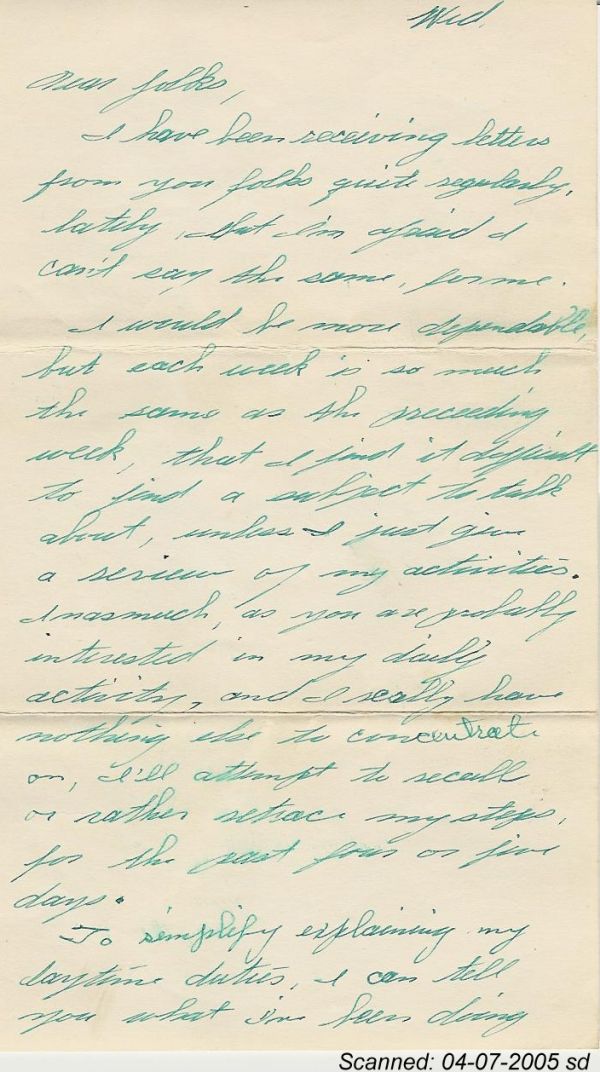 Wed.
Dear folks,
I have been receiving letters
from you folks quite regularly,
lately, but I'm afraid I
can't say the same, for me.
I would be more dependable,
but each week is so much
the same as the preceeding
week, that I find it difficult
to find a subject to talk
about, unless I just give
a review of my activities.
Inasmuch, as you are probally
interested in my daily
activity, and I really have
nothing else to concentrate
on, I'll attempt to recall
or rather retrace my steps,
for the past four or five
days.
To simplify explaining my
daytime duties, I can tell
you what I've been doing
Scanned: 04-07-2005 sd